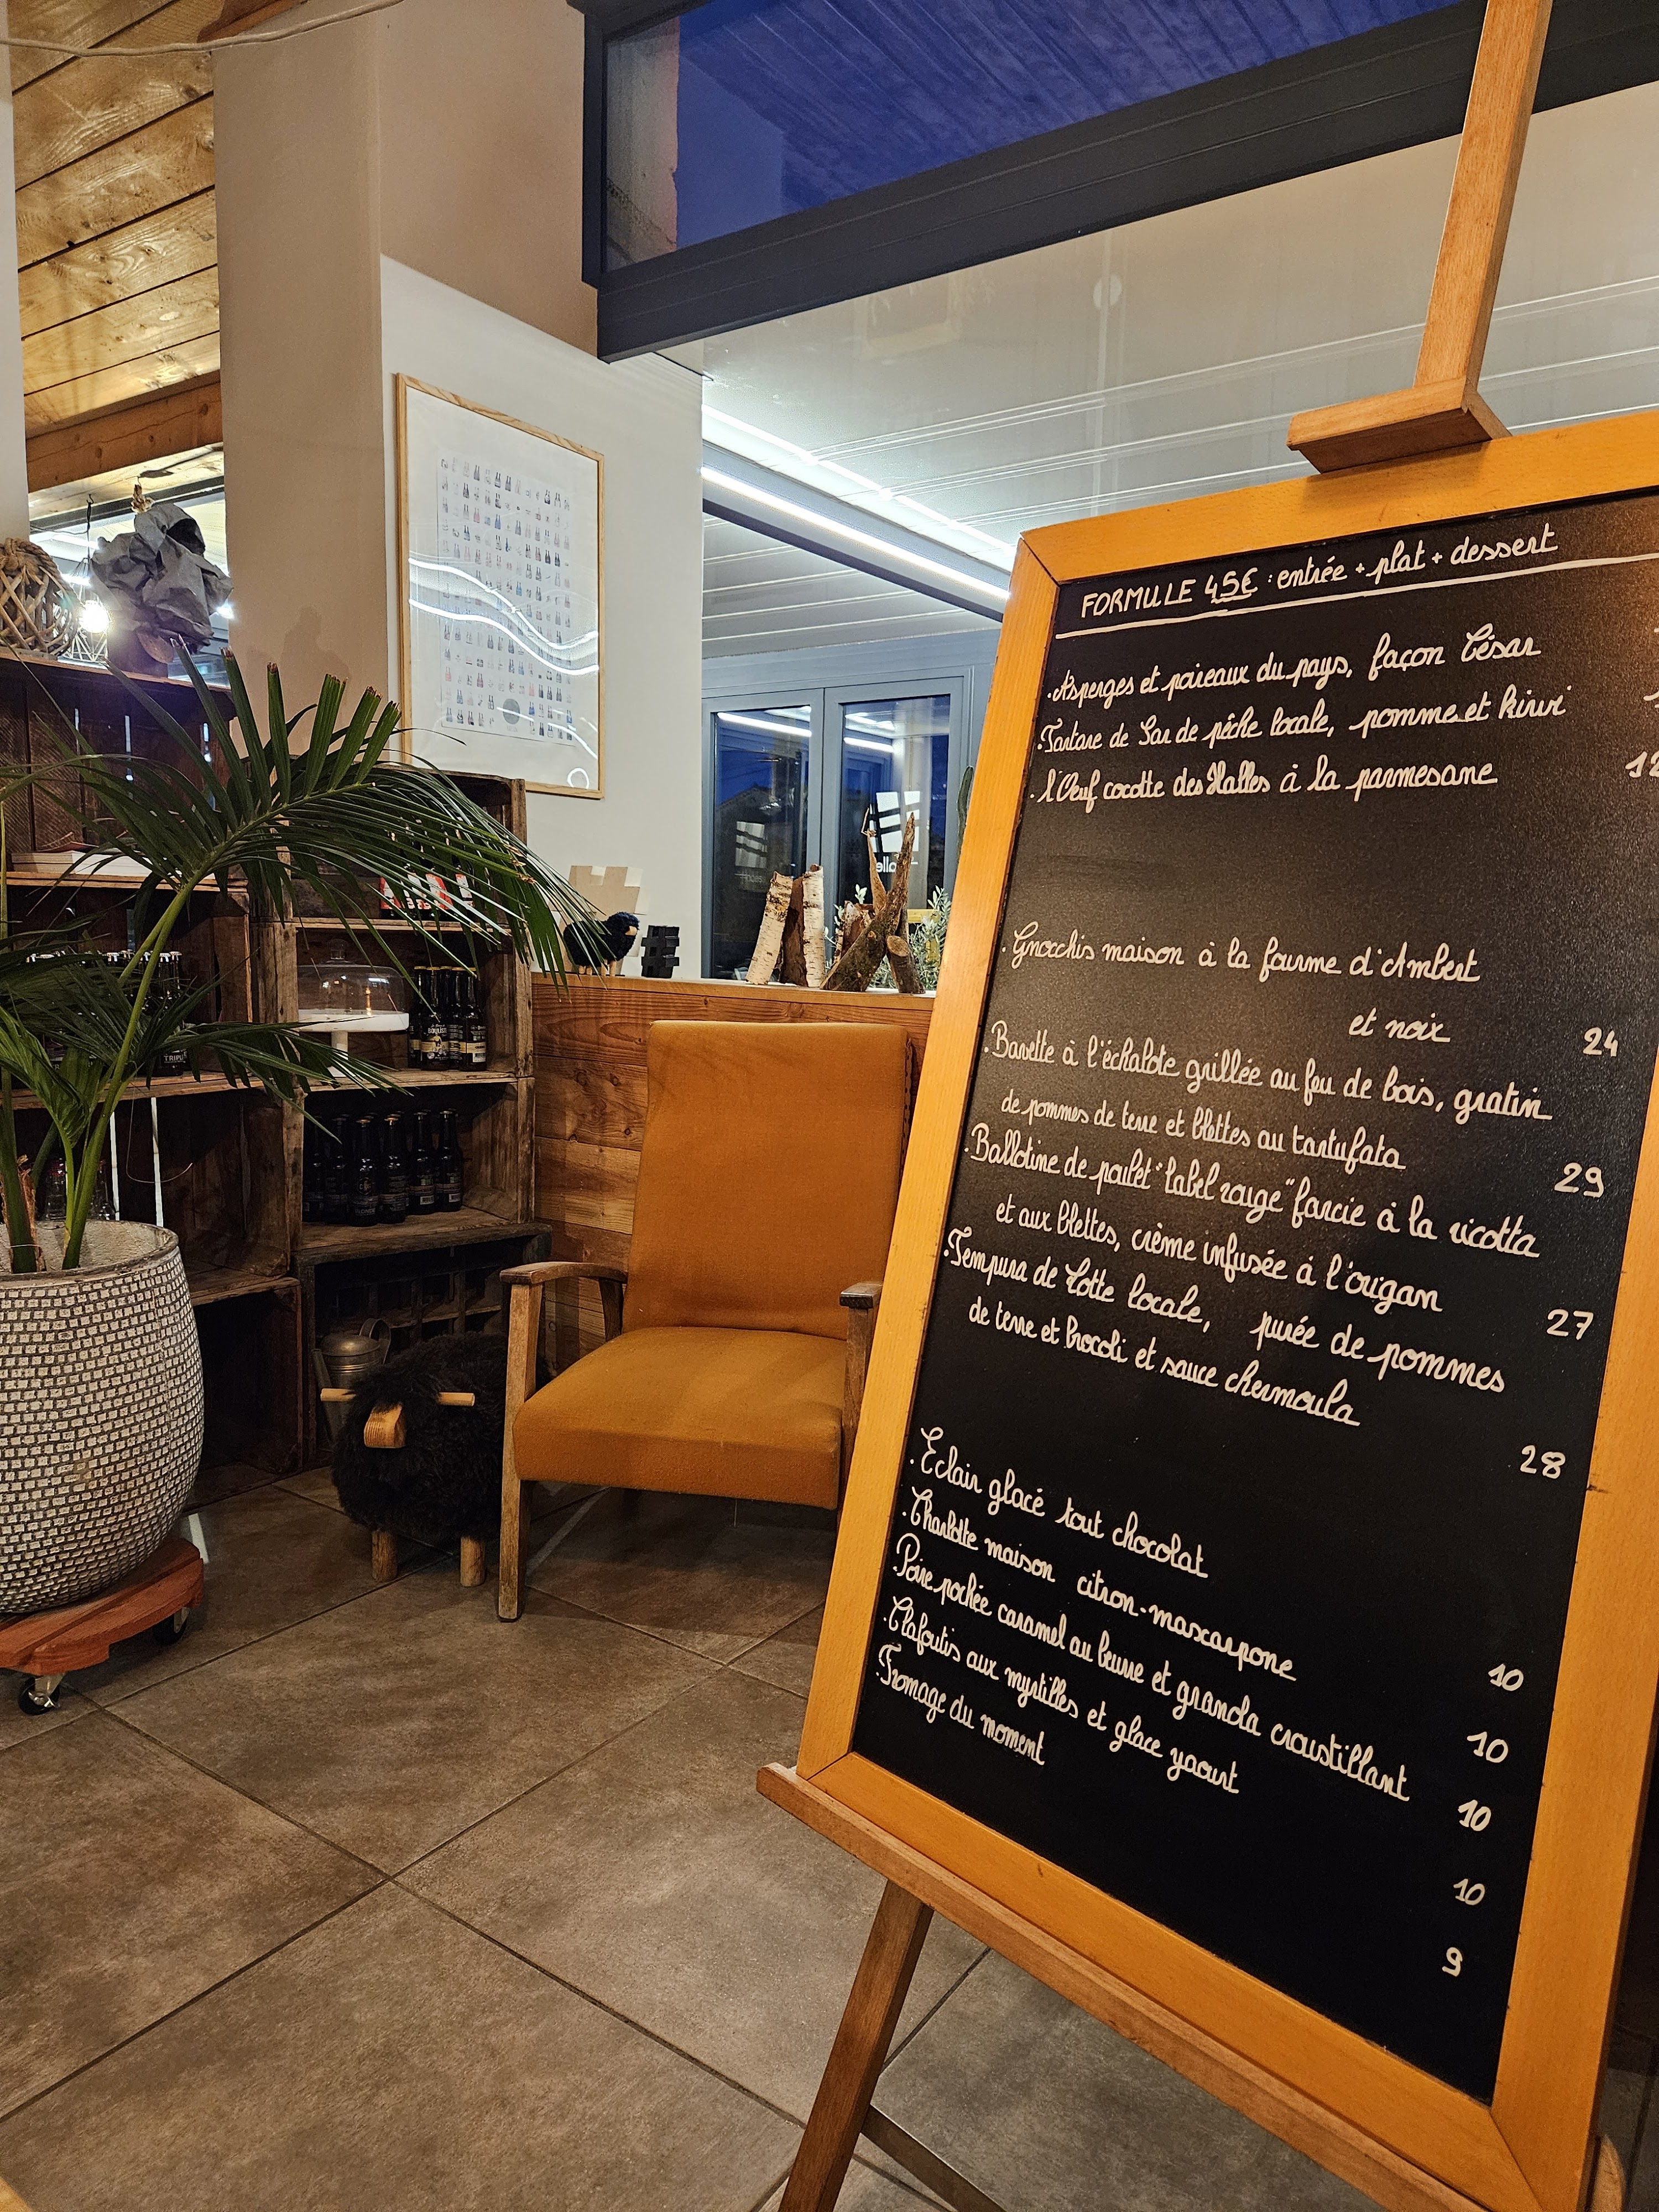 FORMULE 45€ : entrée + plat + dessert
. Asperges et poireaux du pays, façon César
. Tartare de Sar de pêche locale, pomme et kiwi
. l'Oeuf cocotte des Halles à la parmesane 12
. Gnocchis maison à la fourme d'Ambert
et noix 24
. Bavette à l'échalote grillée au feu de bois, gratin
de pommes de terre et blettes au tartufata 29
. Ballotine de poulet "label rouge" farcie à la ricotta
et aux blettes, crème infusée à l'origan 27
. Tempura de Lotte locale, purée de pommes
de terre et brocoli et sauce chermoula 28
. Eclair glacé tout chocolat 10
. Charlotte maison citron-mascarpone 10
. Poire pochée caramel au beurre et granola croustillant 10
. Clafoutis aux myrtilles et glace yaourt 10
. Fromage du moment 9